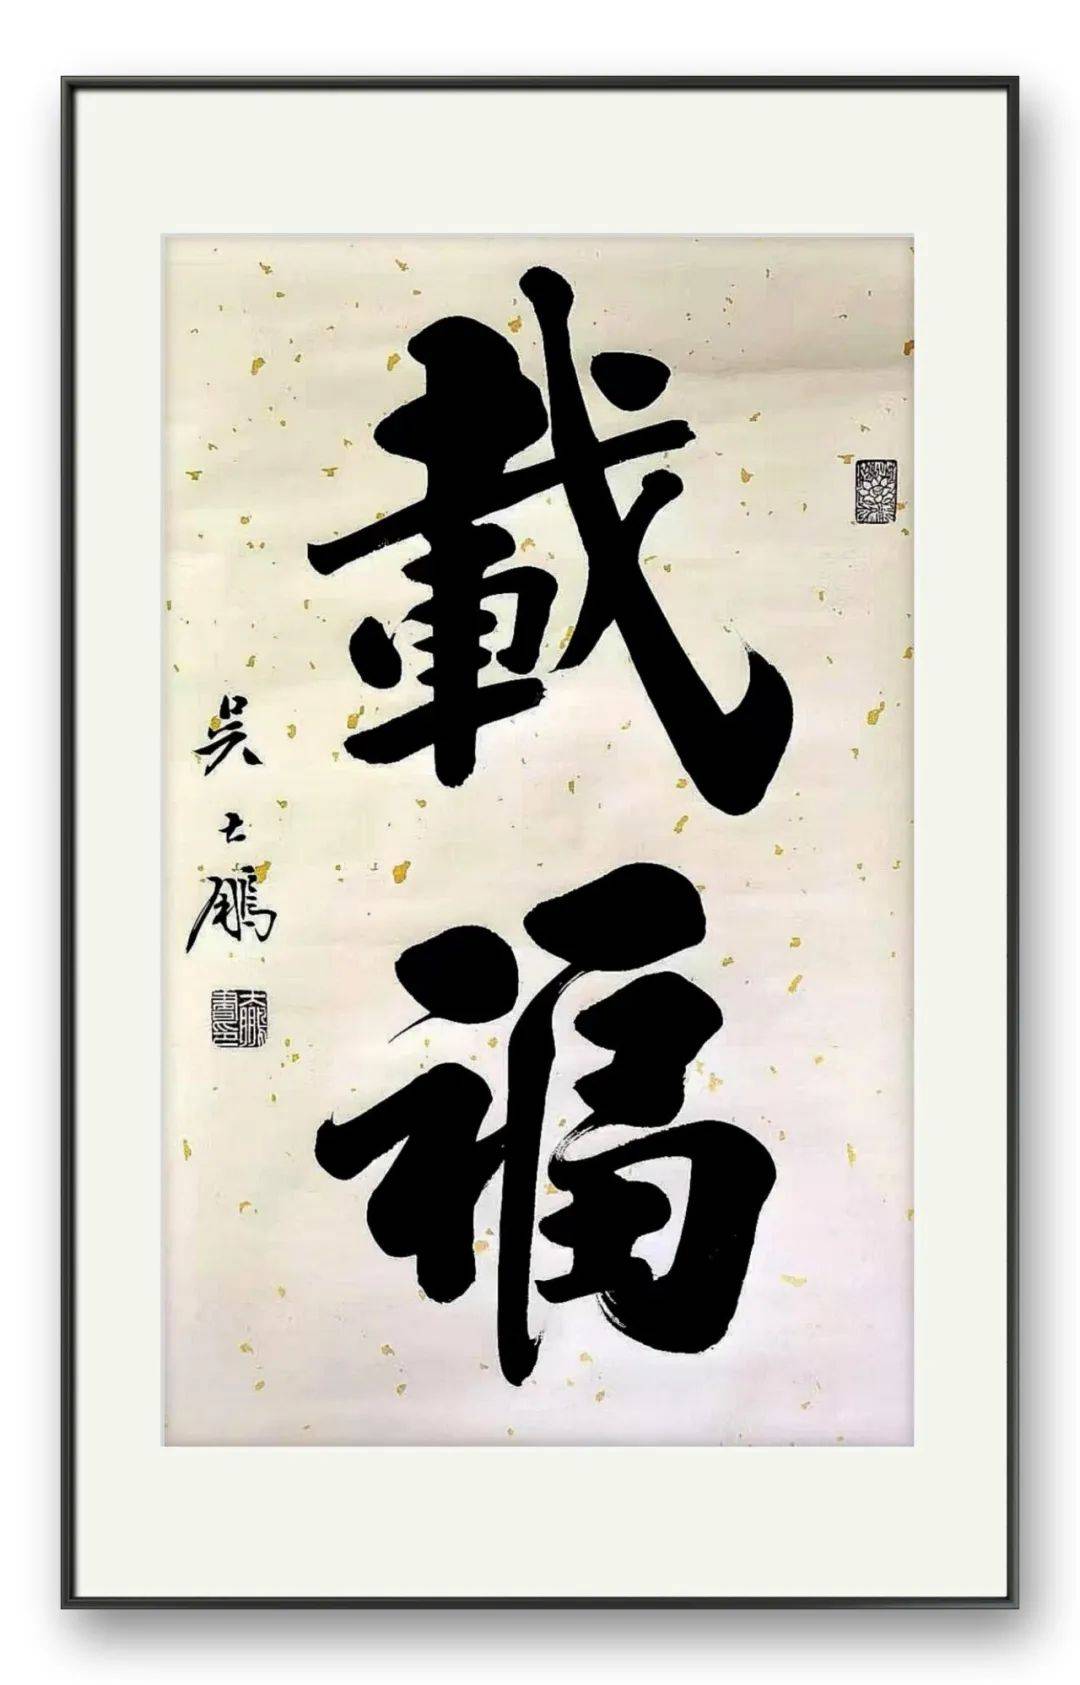 載福
吳士鵬